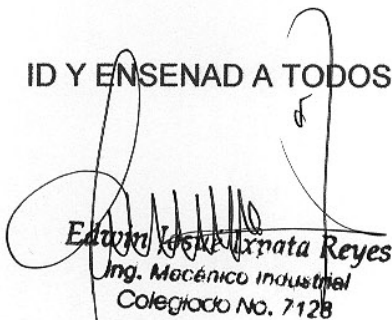 ID Y ENSENAD A TODOS
Edwin Josué Ixpata Reyes
Ing. Mecánico Industrial
Colegiado No. 7128